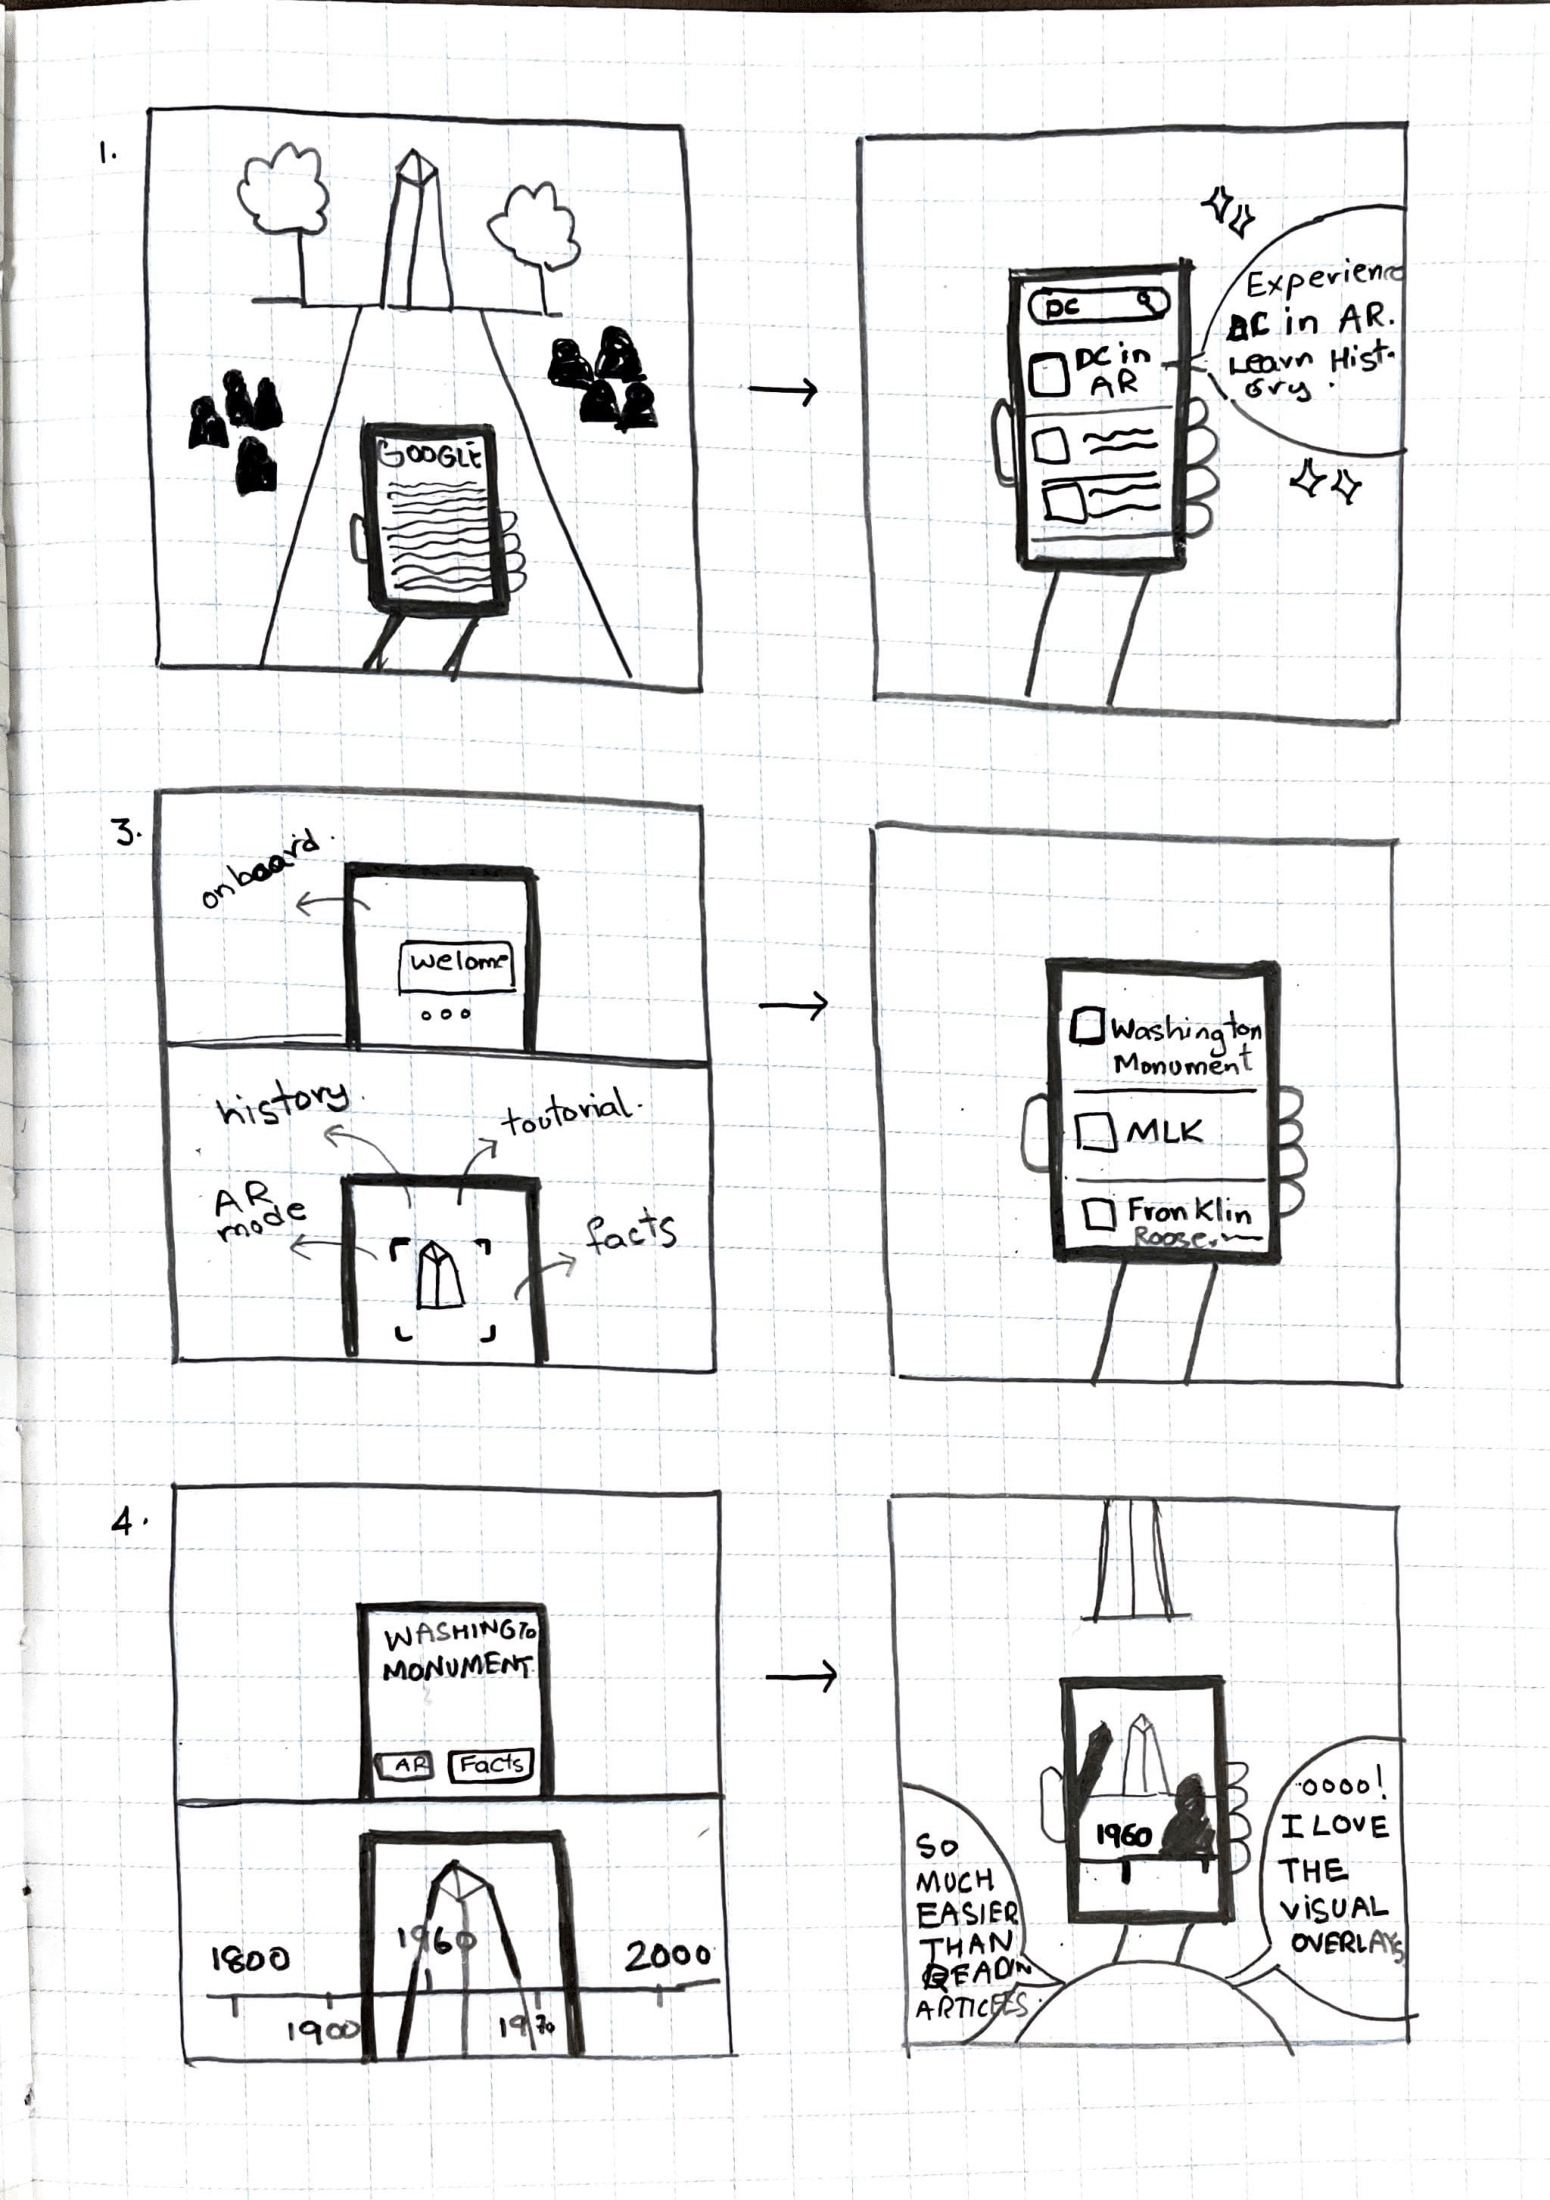 1.
GOOGLE
DC
DC in
AR
Experienc
DC in AR.
Learn Hist-
ory.
3.
onboard.
welome
history.
toutorial.
AR
mode
facts
Washington
Monument
MLK
Fronklin
Roose.
4.
WASHINGTO
MONUMENT
AR
Facts
1800
1900
1960
1970
2000
1960
SO
MUCH
EASIER
THAN
READIN
ARTICLES.
OOOO!
I LOVE
THE
VISUAL
OVERLAYS